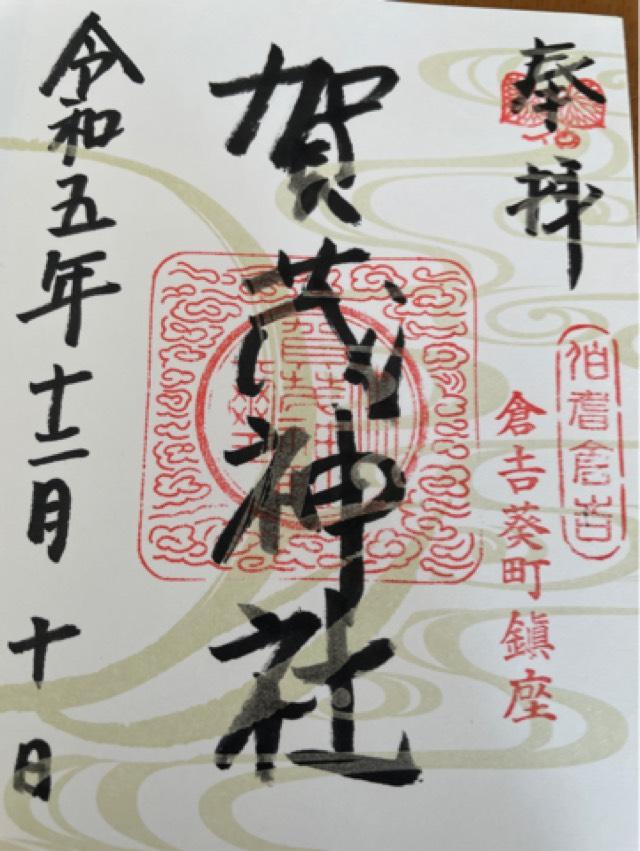 奉拝
伯耆倉吉
倉吉葵町鎮座
賀茂神社
令和五年十二月十日